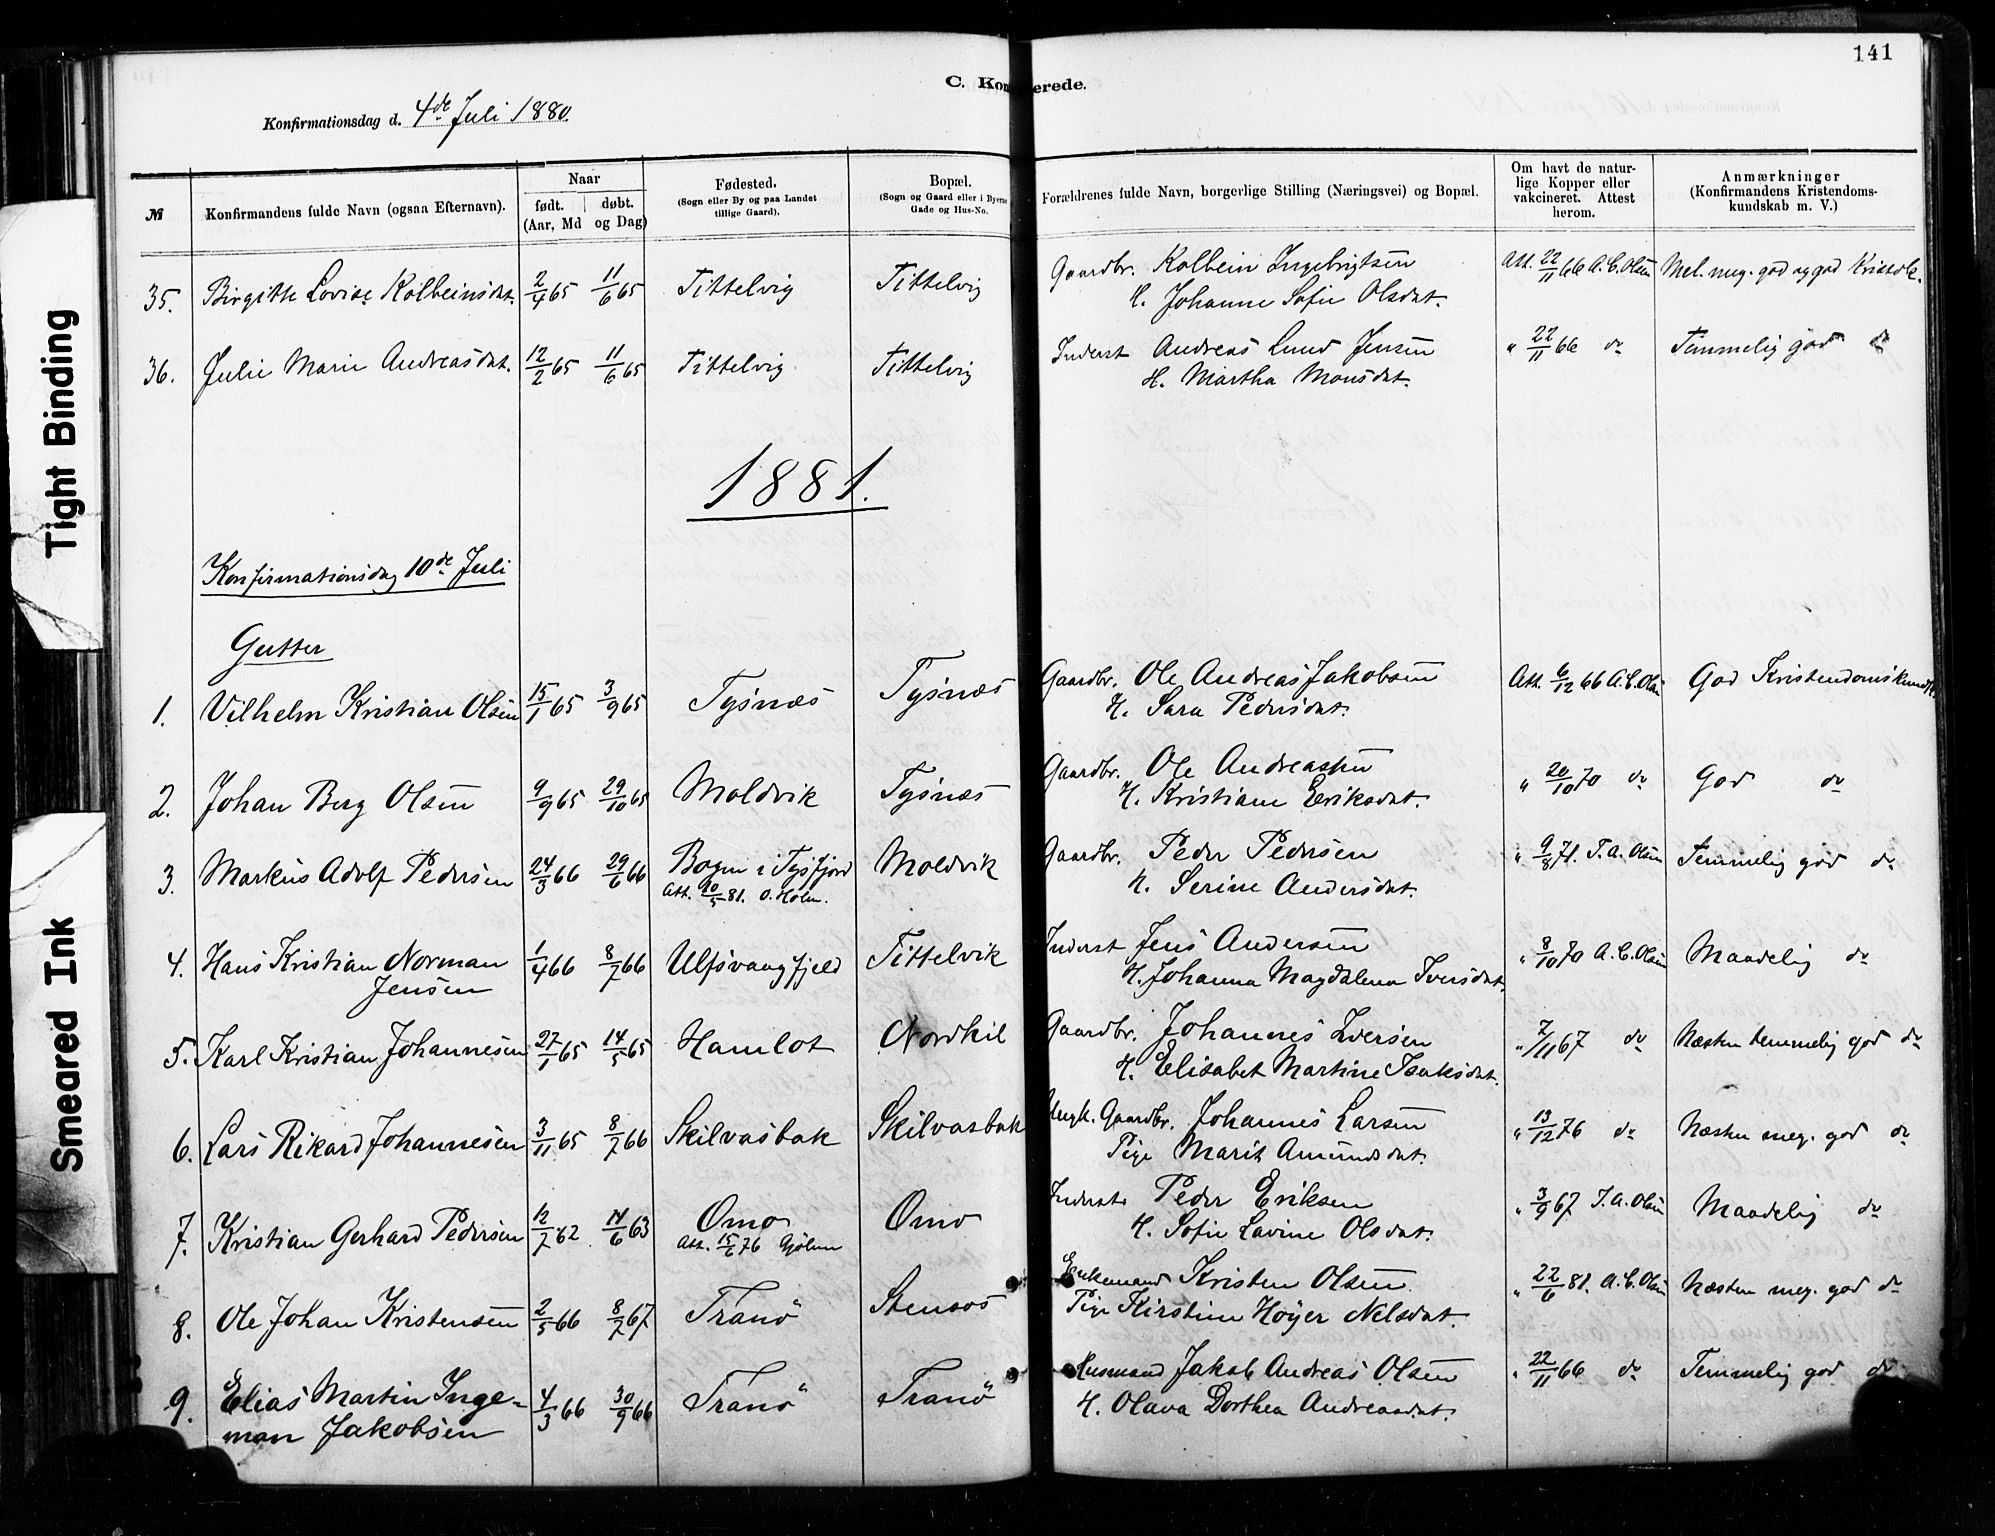 141
C. Kon erede.
Konfirmationsdag d. 4de Juli 1880.
№
Konfirmandens fulde Navn (ogsaa Efternavn).
Naar
født. døbt.
(Aar, Md og Dag)
Fødested.
(Sogn eller By og paa Landet
tillige Gaard).
Bopæl.
(Sogn og Gaard eller i Byerne
Gade og Hus-No.
Forældrenes fulde Navn, borgerlige Stilling (Næringsvei) og Bopæl.
Om havt de natur-
lige Kopper eller
vakcineret. Attest
herom.
Anmærkninger
(Konfirmandens Kristendoms-
kundskab m. V.)
35. Birgitte Lovise Kolbeinsdat. 2/4 65 11/6 65 Tittelvig Tittelvig Gaardbr. Kolbein Ingebrigtsen Att. 22/11 66 A.C.Olsen Mel. meg. god og god Kristdk.
H. Johanne Sofie Olsdat.
36. Julie Marie Andreasdat. 12/2 65 11/6 65 Tittelvig Tittelvig Inderst Andreas Lund Jensen " 22/11 66 do Temmelig god do
H. Martha Monsdat.
1881.
Konfirmationsdag 10de Juli
Gutter
1. Vilhelm Kristian Olsen 15/1 65 3/9 65 Tysnæs Tysnæs Gaardbr. Ole Andreas Jakobsen Att. 6/12 66 A.C.Olsen God Kristendomskundsk.
H. Sara Pedersdat.
2. Johan Berg Olsen 9/9 65 29/10 65 Moldvik Tysnæs Gaardbr. Ole Andreassen " 20/10 70 do God do
H. Kristiane Eriksdat.
3. Markus Adolf Pedersen 24/3 66 29/6 66 Bogen i Tysfjord Moldvik Gaardbr. Peder Pedersen " 9/8 71. T.A.Olsen Temmelig god do
Att. /5 81. O. Holm. H. Serine Andersdat.
4. Hans Kristian Norman 1/4 66 8/7 66 Ulfsvaagfjeld Tittelvik Inderst Jens Andersen " 8/10 70 A.C.Olsen Maadelig do
Jensen H. Johanna Magdalena Iversdat.
5. Karl Kristian Johannesen 27/1 65 14/5 65 Hamlot Nordkil Gaardbr. Johannes Iversen " 7/11 67 do Næsten temmelig god do
H. Elisabet Martine Isaksdat.
6. Lars Rikard Johannesen 3/11 65 8/7 66 Skilvasbak Skilvasbak Ungk. Gaardbr. Johannes Larsen " 13/12 76 do Næsten meg. god do
Pige Marit Amundsdat.
7. Kristian Gerhard Pedersen 12/7 62 14/6 63 Omo Omo Inderst Peder Eriksen " 3/9 67 T.A.Olsen Maadelig do
Att. 15/6 76 H. Sofie Lavine Olsdat.
8. Ole Johan Kristensen 2/5 66 8/7 67 Tranö Stensos Enkemand Kristen Olsen " 22/6 81. A.C.Olsen Næsten meg. god do
Pige Kirstine Høyer Nelsdat.
9. Elias Martin Inge- 4/3 66 30/9 66 Tranö Tranö Husmand Jakob Andreas Olsen " 22/11 66 do Temmelig god do
man Jakobsen H. Olava Dorthea Andreasdat.
Tight Binding
Smeared Ink